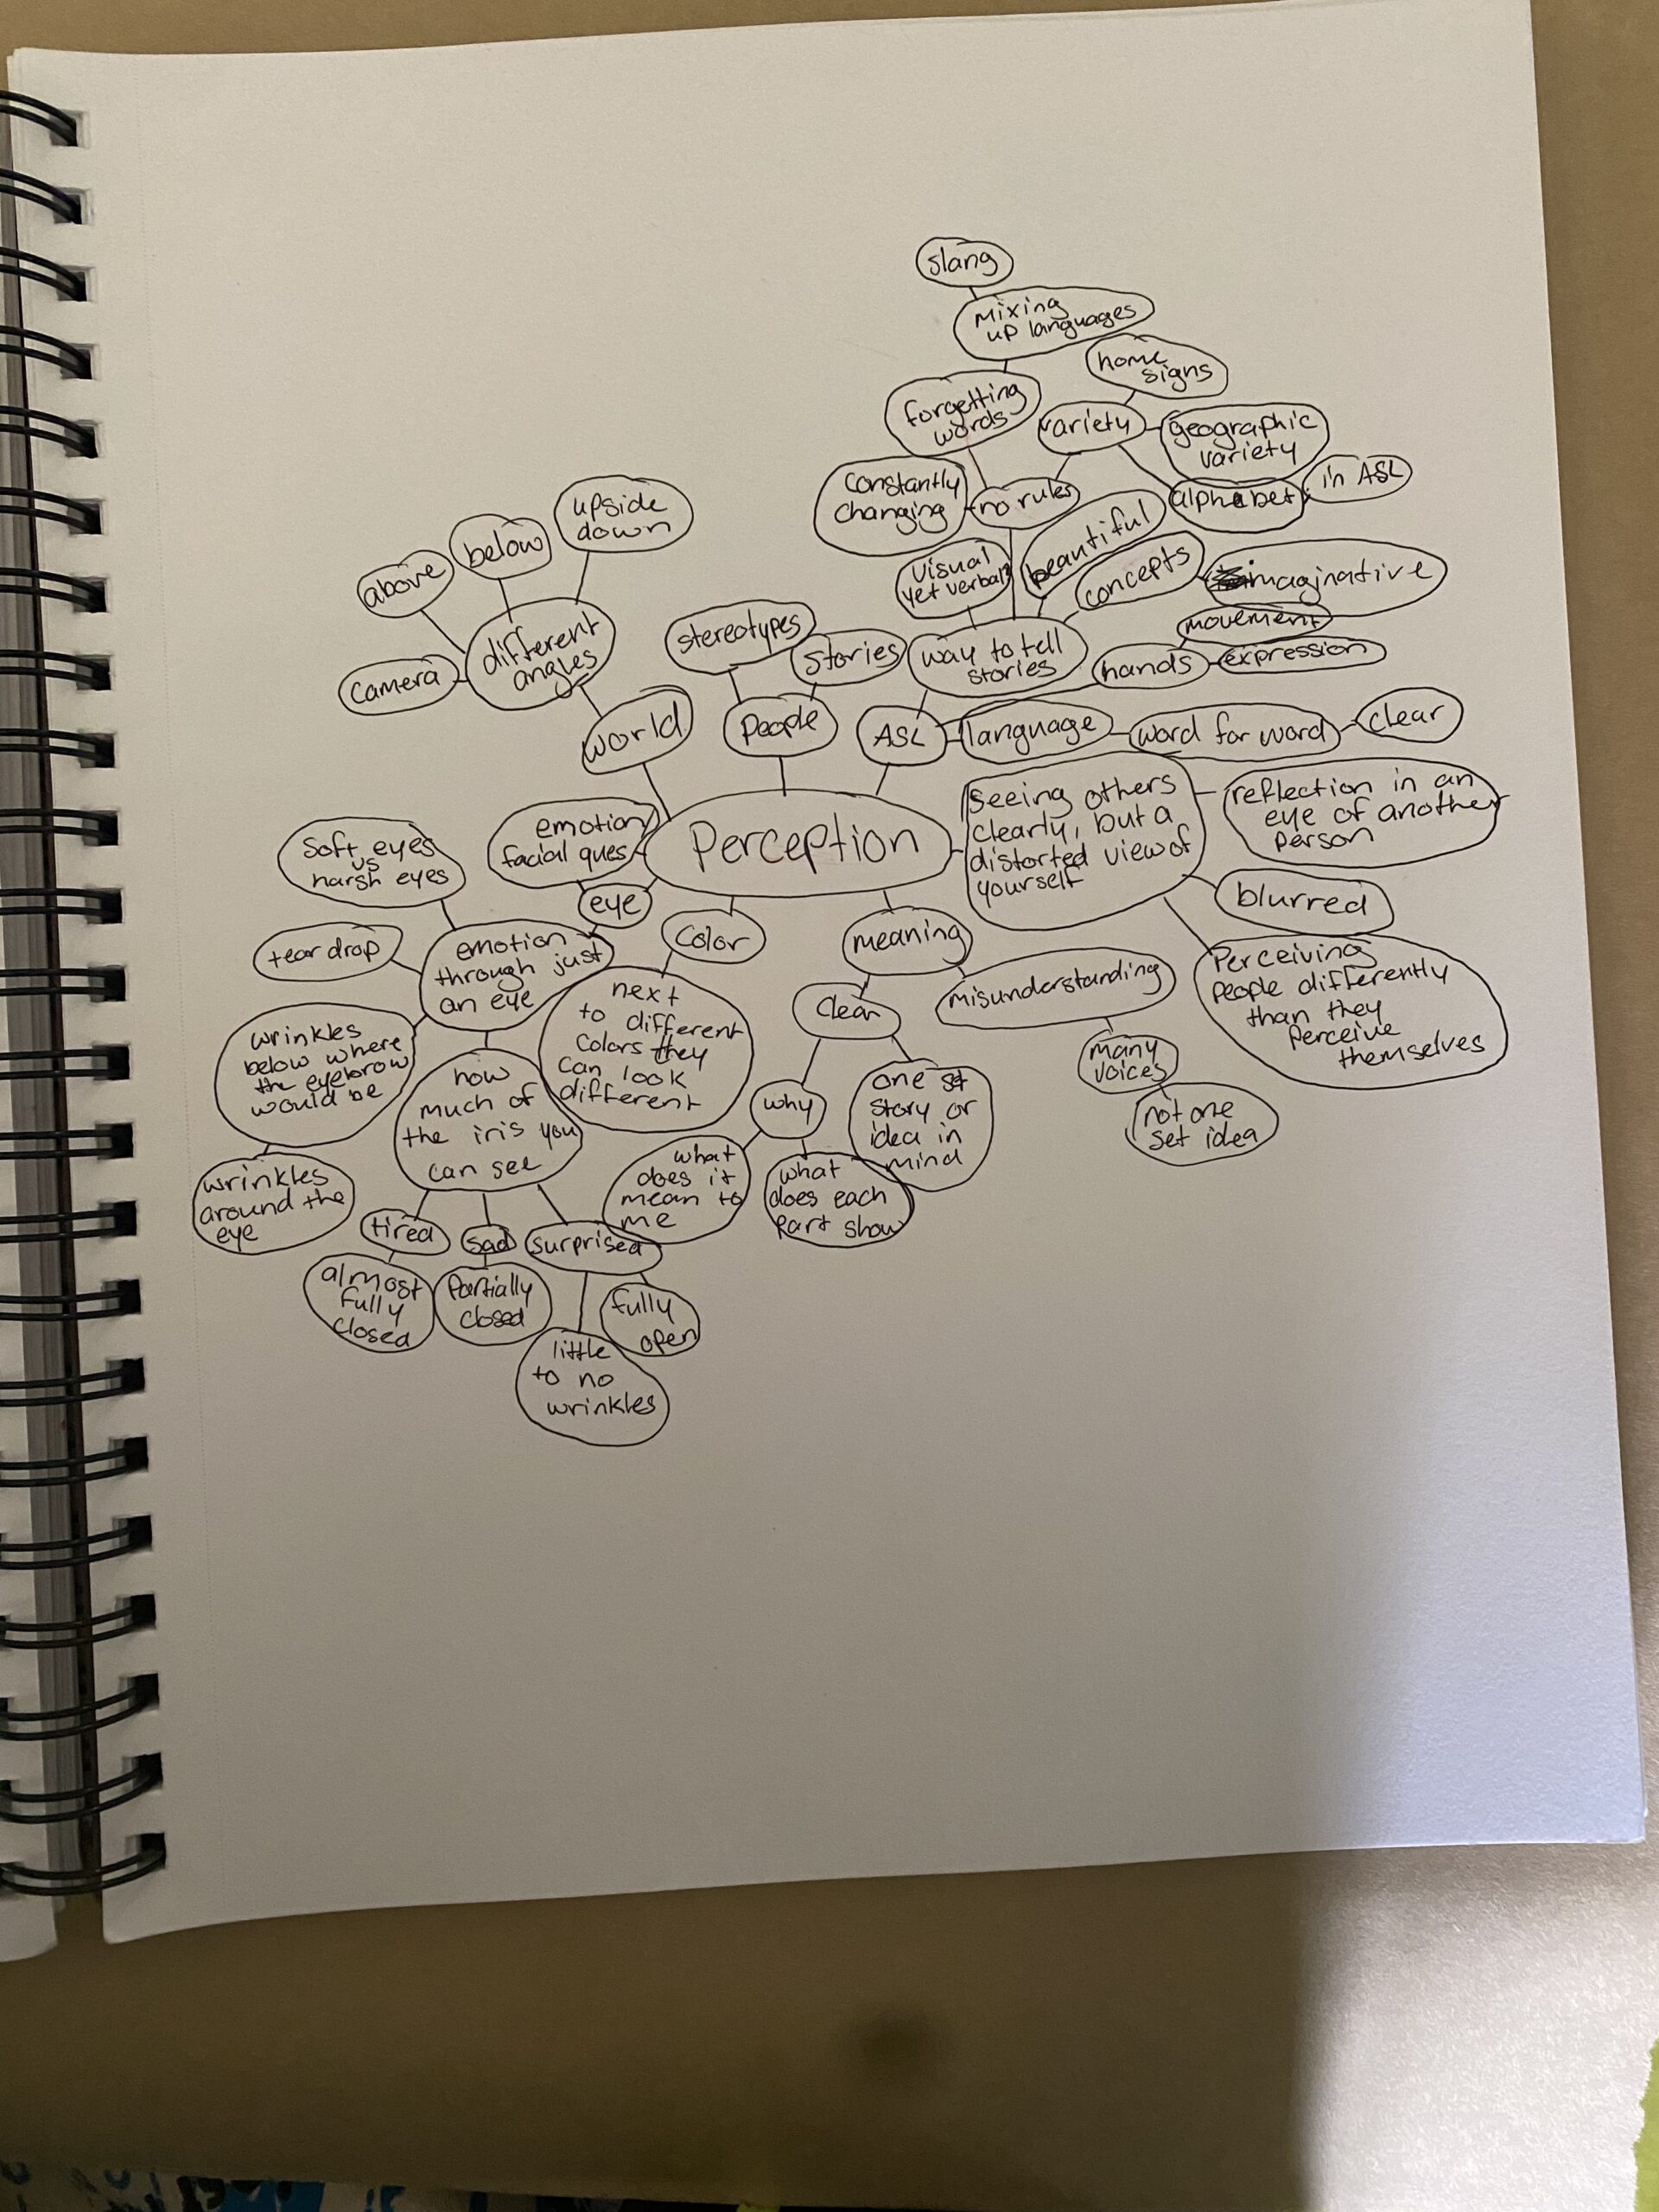 slang
Mixing
up languages
home
signs
forgetting
words
variety
geographic
variety
constantly
changing
no rules
alphabet
in ASL
upside
down
below
above
different
angles
camera
world
visual
yet verbal
beautiful
concepts
imaginative
stereotypes
stories
way to tell
stories
movement
hands
expression
People
ASL
language
word for word
clear
Perception
emotion
facial ques
eye
seeing others
clearly, but a
distorted view of
yourself
reflection in an
eye of another
person
blurred
Perceiving
people differently
than they
perceive
themselves
soft eyes
vs
harsh eyes
tear drop
emotion
through just
an eye
color
next
to different
colors they
can look
different
meaning
misunderstanding
many
voices
not one
set idea
clear
why
one set
story or
idea in
mind
what
does it
mean to
me
what
does each
part show
wrinkles
below where
the eyebrow
would be
wrinkles
around the
eye
how
much of
the iris you
can see
tired
sad
surprised
almost
fully
closed
Partially
closed
little
to no
wrinkles
fully
open